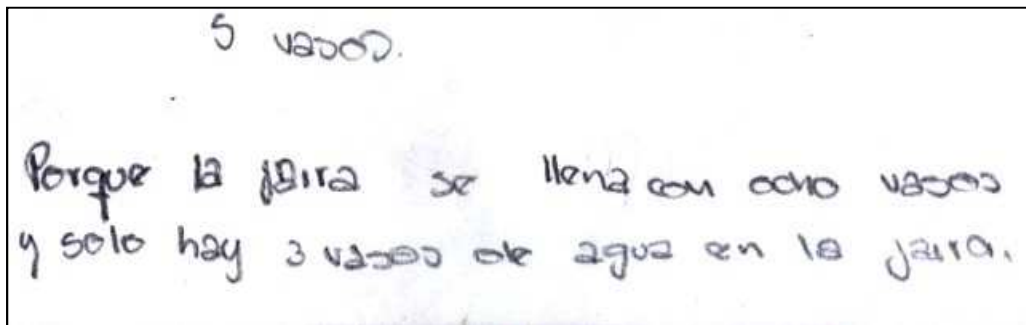 5 vasos.
Porque la jarra se llena con ocho vasos
y solo hay 3 vasos de agua en la jarra.